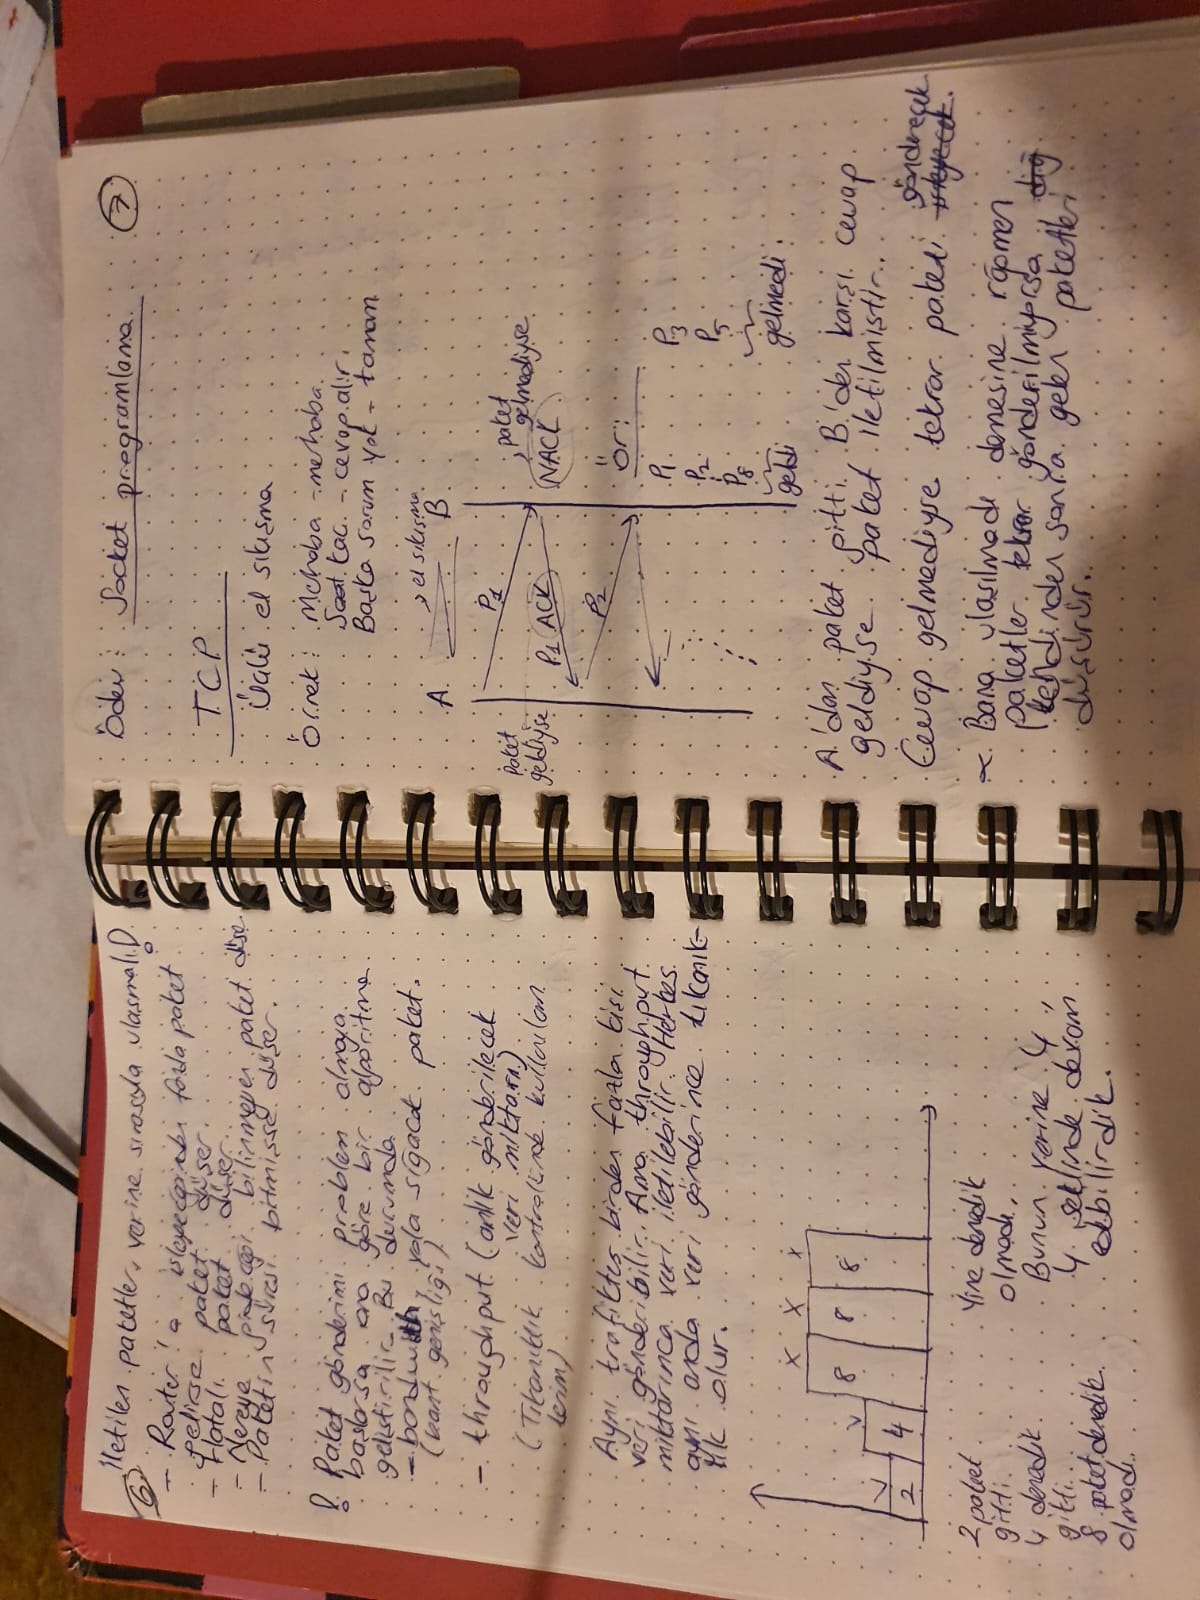 6
İletilen paketler, yerine sırasıyla ulaşmalı!
- Router'a işleyeceğinden fazla paket
gelirse paket düşer.
- Hatalı paket düşer.
- Nereye gideceği bilinmeyen paket düşe
- Paketin süresi bitmişse düşer.
! Paket gönderimi problem olmaya
başlarsa ona göre bir algoritma
geliştirilir. Bu durumda
- bandwith, yola sığacak paket.
(bant genişliği)
- throughput (anlık gönderilecek
veri miktarı)
(Tıkanıklık kontrolünde kullanılan
terim)
Aynı trafikte birden fazla kişi
veri gönderibilir. Ama throughput
miktarınca veri iletilebilir. Herkes
aynı anda veri gönderince tıkanık-
lık olur.
x x x
2 4 8 8 8
2 paket
gitti.
4 denedik
gitti.
8 paket denedik
olmadı.
Yine denedik
olmadı.
Bunun yerine 4,
4 şeklinde devam
edebilirdik.
Ödev: Socket programlama
7
TCP
Üçlü el sıkışma
Örnek: Merhaba - merhaba.
Saat kaç. - cevap alır.
Başka sorum yok - tamam
el sıkışma
A B
P1
paket
geldiyse
paket
gelmediyse
P1 ACK
NACK
P2
Ör:
P1 P3
P2 P5
P8
geldi gelmedi.
A'dan paket gitti. B'den karşı cevap
geldiyse paket iletilmiştir.
Cevap gelmediyse tekrar paketi gönderecek
isteyecek.
Bana ulaşılmadı demesine rağmen
paketler tekrar gönderilmiyorsa, diğ
kendinden sonra gelen paketleri
düşürür.